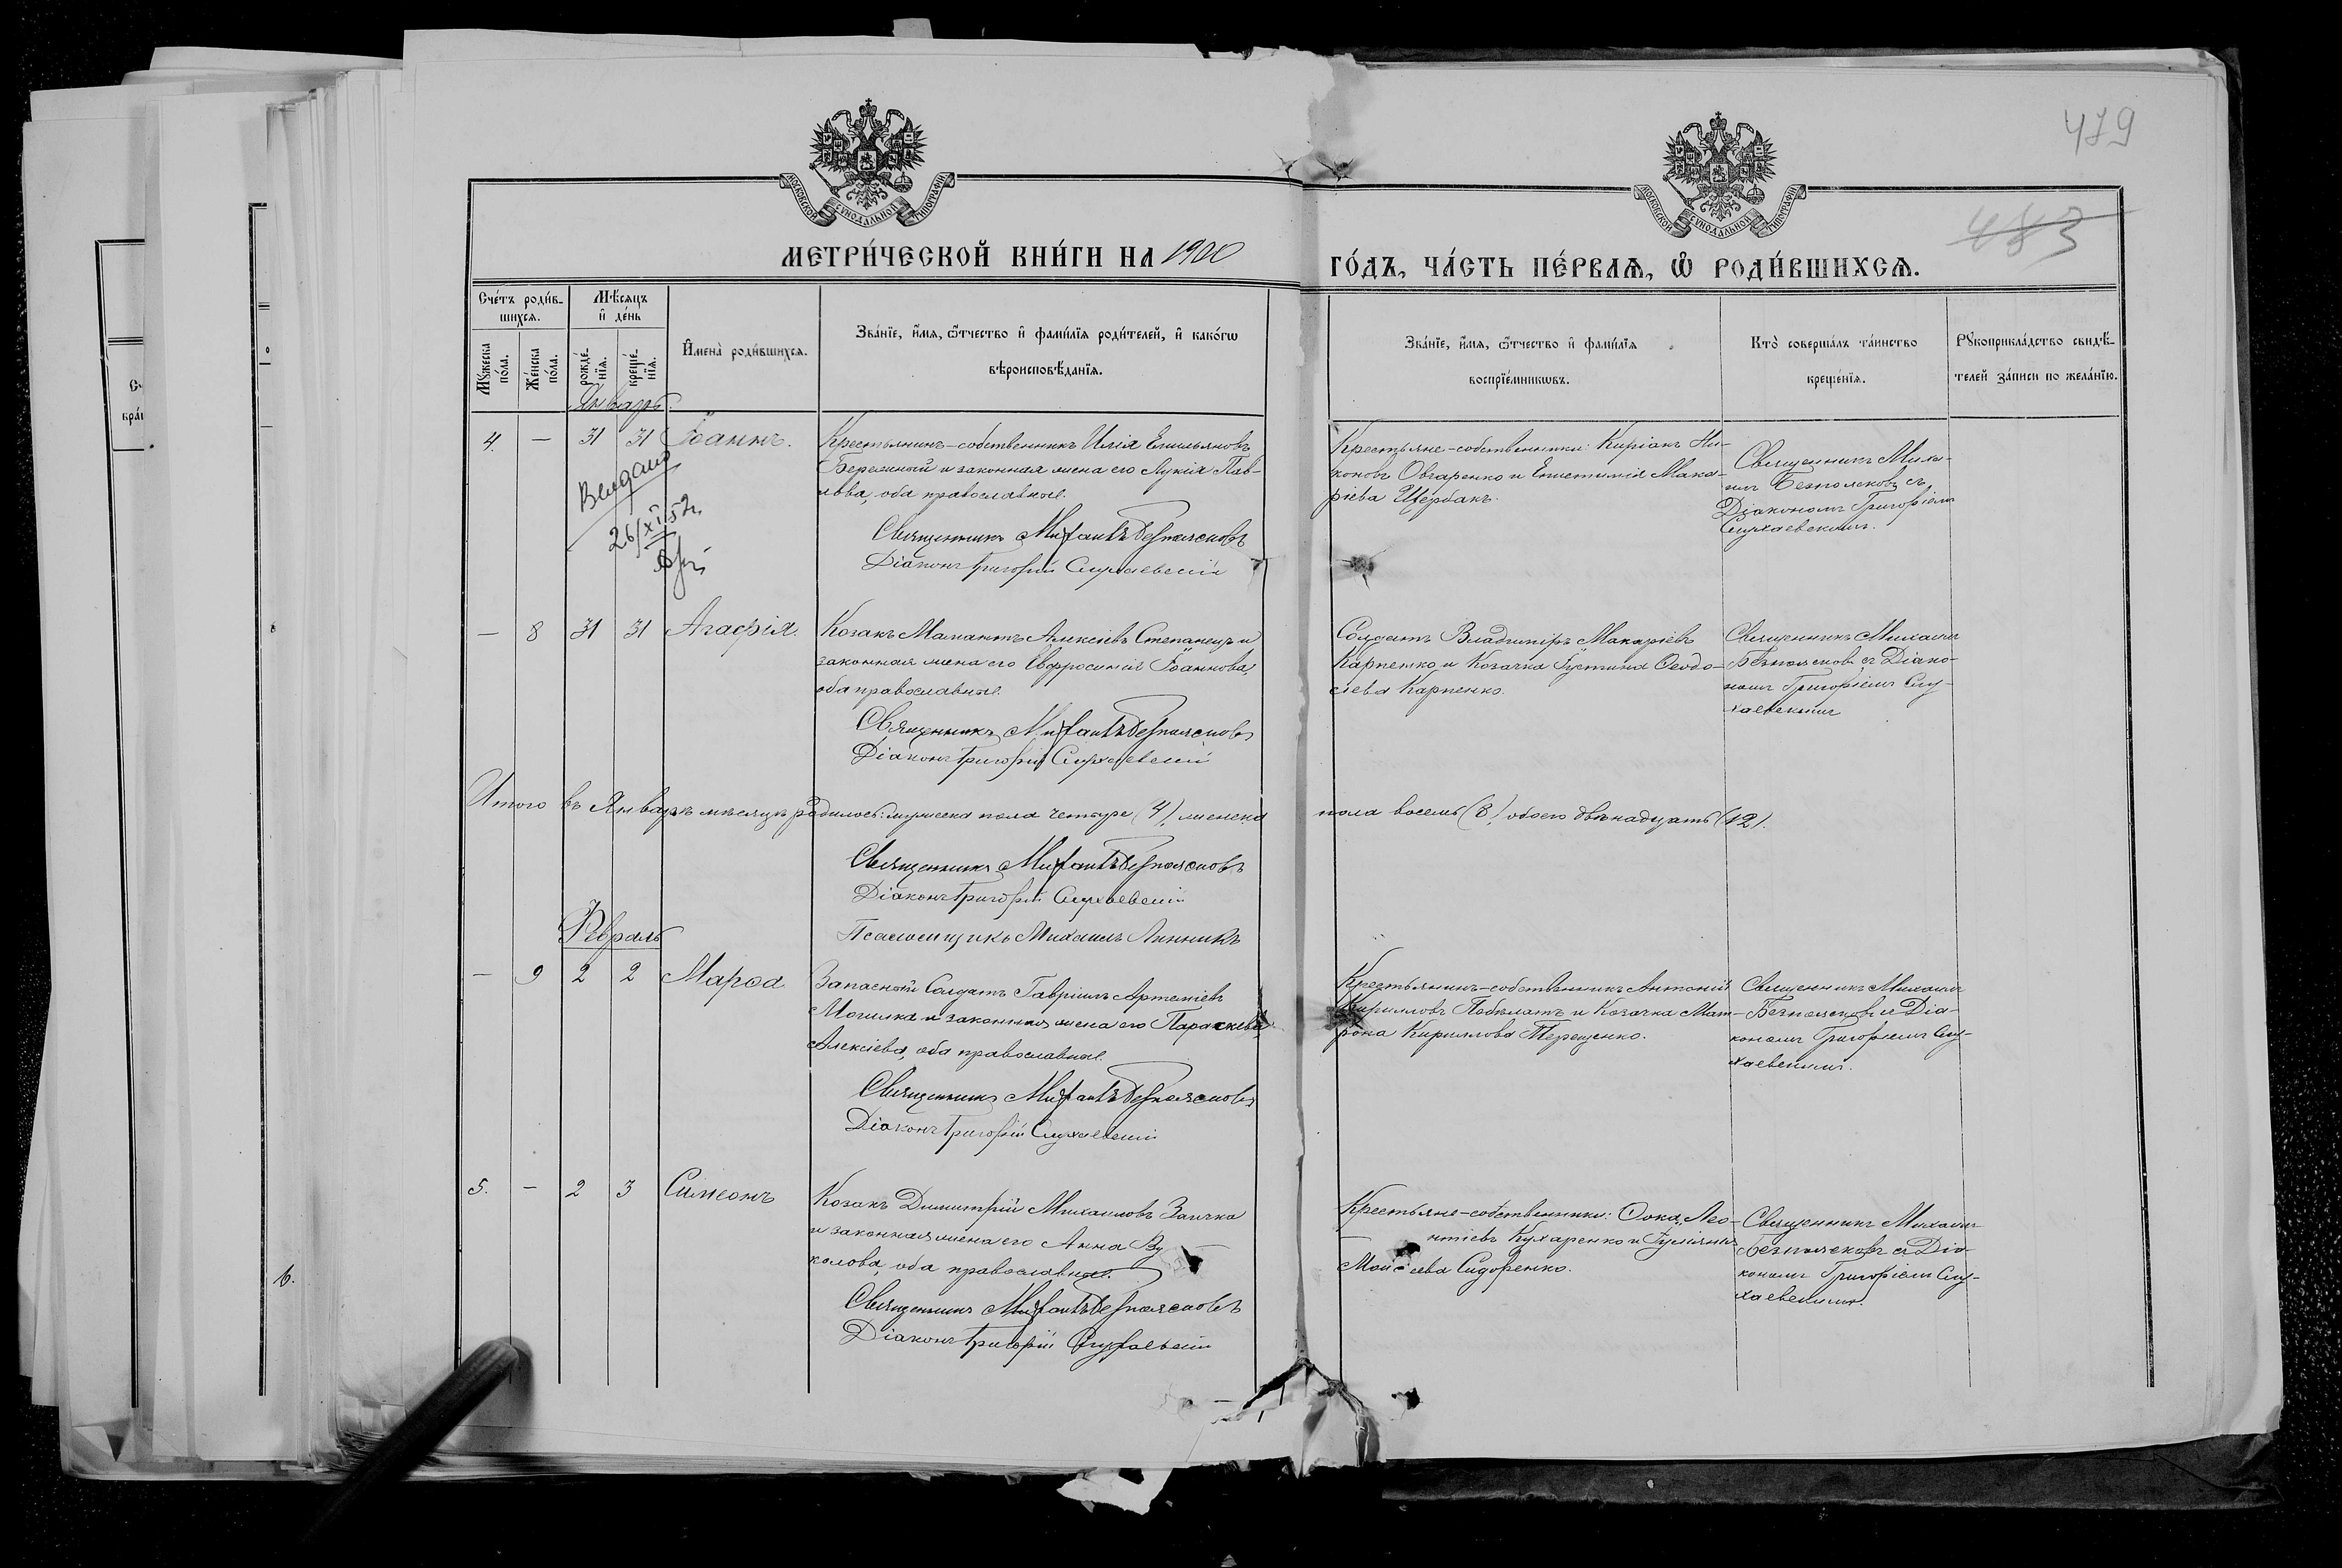 479
483
МОСКОВСКОЙ СѴНОДАЛЬНОЙ ТИПОГРАФІИ
МОСКОВСКОЙ СѴНОДАЛЬНОЙ ТИПОГРАФІИ
МЕТРИ́ЧЕСКОЙ КНИ́ГИ НА 1900 ГО́ДЪ, ЧА́СТЬ ПЕ́РВАѦ, Ѡ҆ РОДИ́ВШИХСѦ.
Сче́тъ роди́в-
шихсѧ.
Мꙋ́жеска по́ла.
Же́нска по́ла.
Мѣ́сѧцъ
и҆ де́нь
рожде́-
нїѧ.
креще́-
нїѧ.
И҆мена̀ роди́вшихсѧ.
Зва́нїе, и҆́мѧ, ѻ҆́тчество и҆ фами́лїѧ роди́телей, и҆ како́гѡ
вѣроисповѣ́данїѧ.
Зва́нїе, и҆́мѧ, ѻ҆́тчество и҆ фами́лїѧ
воспрїе́мникѡвъ.
Кто̀ соверша́лъ та́инство
креще́нїѧ.
Рꙋкоприкла́дство свидѣ́-
телей за́писи по жела́нїю.
Январь
4. — 31 31 Іоаннъ.
Крестьянинъ-собственникъ Илія Емильяновъ
Бережный и законная жена его Лукія Пав-
лова, оба православные.
Священникъ Михаилъ Безпоясковъ
Діаконъ Григорій Слухаевскій
Крестьяне-собственники: Киріакъ Ни-
коновъ Овчаренко и Епистимія Мака-
ріева Щербакъ.
Священникъ Миха-
илъ Безпоясковъ съ
Діакономъ Григоріемъ
Слухаевскимъ.
Выдано
26/XI 52 г.
— 8 31 31 Агафія.
Козакъ Мамантъ Алексіевъ Степанецъ и
законная жена его Евфросинія Іоаннова,
оба православные.
Священникъ Михаилъ Безпоясковъ
Діаконъ Григорій Слухаевскій
Солдатъ Владиміръ Макаріевъ
Карпенко и Козачка Іустина Ѳеодо-
сіева Карпенко.
Священникъ Михаилъ
Безпоясковъ съ Діако-
номъ Григоріемъ Слу-
хаевскимъ
Итого въ Январѣ мѣсяцѣ родилось: мужеска пола четыре (4), женска пола восемь (8), обоего двѣнадцать (12).
Священникъ Михаилъ Безпоясковъ
Діаконъ Григорій Слухаевскій
Псаломщикъ Михаилъ Линникъ
Февраль
— 9 2 2 Марѳа
Запасный Солдатъ Гавріилъ Артеміевъ
Могилка и законная жена его Параскева
Алексіева, оба православные.
Священникъ Михаилъ Безпоясковъ
Діаконъ Григорій Слухаевскій
Крестьянинъ-собственникъ Антоній
Кирилловъ Побѣлатъ и Козачка Мат-
рона Кириллова Терещенко.
Священникъ Михаилъ
Безпоясковъ съ Діа-
кономъ Григоріемъ Слу-
хаевскимъ.
5. — 2 3 Симеонъ
Козакъ Димитрій Михаиловъ Заичка
и законная жена его Анна Ву
колова, оба православные.
Священникъ Михаилъ Безпоясковъ
Діаконъ Григорій Слухаевскій
Крестьяне-собственники: Ѳока Лео-
нтіевъ Кухаренко и Іуліанія
Моисіева Сидоренко.
Священникъ Михаилъ
Безпоясковъ съ Діа-
кономъ Григоріемъ Слу-
хаевскимъ.